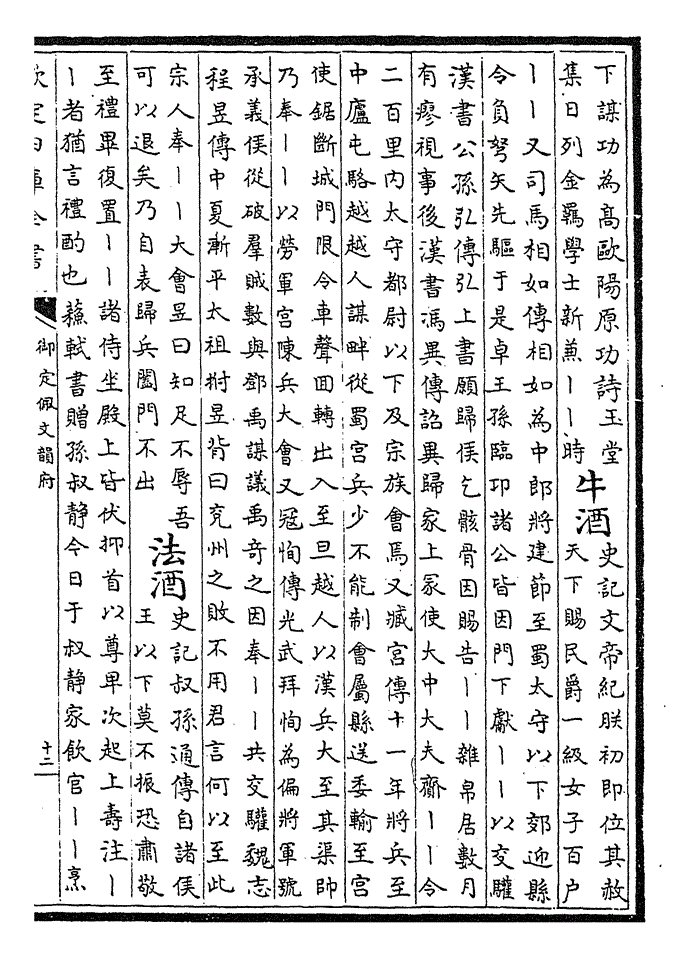 下謀功為高歐陽原功詩玉堂
集日列金羈學士新兼丨丨時
牛酒
史記文帝紀朕初即位其赦
天下賜民爵一級女子百户
丨丨又司馬相如傳相如為中郎將建節至蜀太守以下郊迎縣
令負弩矢先驅于是卓王孫臨卭諸公皆因門下獻丨丨以交驩
漢書公孫弘傳弘上書願歸侯乞骸骨因賜告丨丨雜帛居數月
有瘳視事後漢書馮異傳詔異歸家上冢使大中大夫齎丨丨令
二百里内太守都尉以下及宗族會焉又臧宫傳十一年將兵至
中廬屯駱越越人謀畔從蜀宫兵少不能制會屬縣送委輸至宫
使鋸斷城門限令車聲囬轉出入至旦越人以漢兵大至其渠帥
乃奉丨丨以勞軍宫陳兵大會又冦恂傳光武拜恂為偏將軍號
承義侯從破羣賊數與鄧禹謀議禹竒之因奉丨丨共交驩魏志
程昱傳中夏漸平太祖拊昱背曰兖州之敗不用君言何以至此
宗人奉丨丨大會昱曰知足不辱吾
可以退矣乃自表歸兵闔門不出
法酒
史記叔孫通傳自諸侯
王以下莫不振恐肅敬
至禮畢復置丨丨諸侍坐殿上皆伏抑首以尊卑次起上壽注丨
丨者猶言禮酌也蘓軾書贈孫叔静今日于叔静家飲官丨丨烹
欽定四庫全書
御定佩文韻府
十二